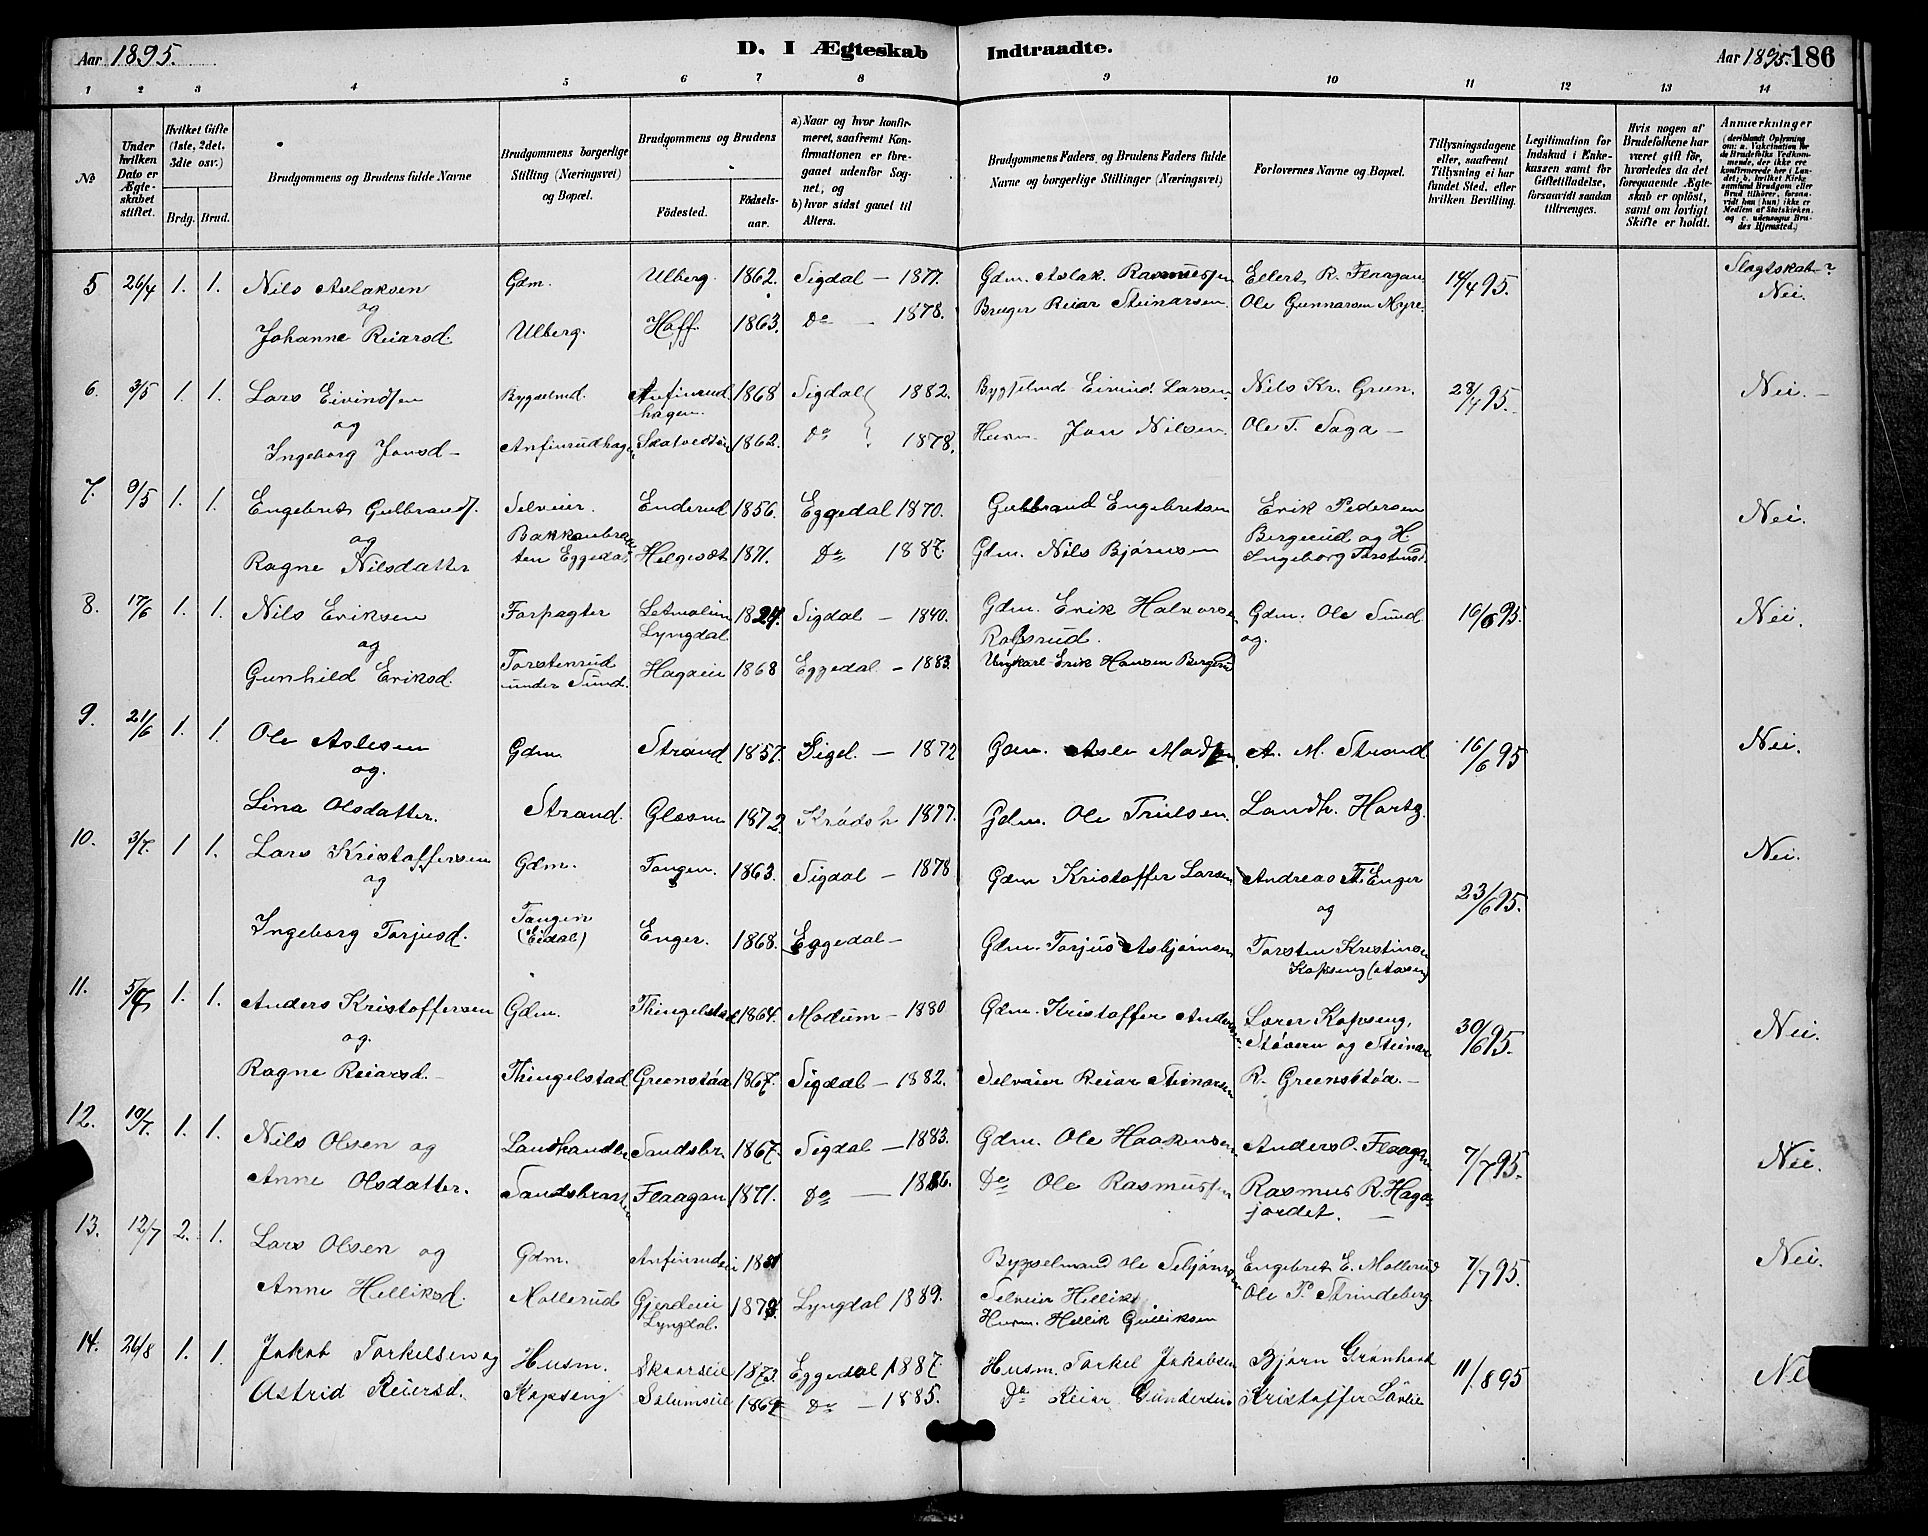 Aar 1895.
D. I Ægteskab Indtraadte.
Aar 1895. 186
1 2 3 4 5 6 7 8 9 10 11 12 13 14
№
Under hvilken Dato er Ægteskabet stiftet.
Hvilket Gifte (1ste, 2det, 3die osv.)
Brdg. Brud.
Brudgommens og Brudens fulde Navne
Brudgommens borgerlige Stilling (Næringsvei) og Bopæl.
Brudgommens og Brudens
Fødested.
Fødselsaar.
a) Naar og hvor konfirmeret, saafremt Konfirmationen er foregaaet udenfor Sognet, og
b) hvor sidst gaaet til Alters.
Brudgommens Faders, og Brudens Faders fulde Navne og borgerlige Stillinger (Næringsvei)
Forlovernes Navne og Bopæl.
Tillysningsdagene eller, saafremt Tillysning ei har fundet Sted, efter hvilken Bevilling.
Legitimation for Indskud i Enkekassen samt for Giftetilladelse, forsaavidt saadan tiltrænges.
Hvis nogen af Brudefolkene har været gift før, hvorledes da det foregaaende Ægteskab er opløst, samt om lovligt Skifte er holdt.
Anmærkninger
(deriblandt Oplysning om: a. Vaccination for de Brudefolks Vedkommende, der ikke ere konfirmerede her i Landet; b. hvilket Kirkesamfund Brudgom eller Brud tilhører, forsaavidt han (hun) ikke er Medlem af Statskirken, og c. udensogns Brudes Hjemsted.)
5 26/4 1. 1. Nils Aslaksen Gdm. Ulberg. 1862. Sigdal — 1877. Gdm. Aslak Rasmussen Ellert R. Flaagan 14/4 95. Slægtskab?
og Bruger Reiar Steinarsen. Ole Gunnarsen Myre. Nei.
Johanne Reiarsd. Ulberg. Hoff. 1863. Do — 1878.
6. 3/5 1. 1. Lars Eivindsen Bygselmd. Anfinrud 1868 Sigdal 1882. Bygselmd Eivind Larsen Nils Kr. Green. 28/4 95. Nei. —
og hagen.
Ingeborg Jonsd — Anfinrudhagen 1862. Do 1878. Husm. Jon Nilsen. Ole T. Saga —
7. 9/5 1. 1. Engebret Gulbrands. Selveier. Enderud 1856. Eggedal 1870. Gulbrand Engebretsen Erik Pedersen Nei.
og Bakkenbraaten Eggedal Bergerud og H.
Ragne Nilsdatter Helgeset 1871. Do 1887. Gdm. Nils Bjørnsen Ingeborg Torstensd.
8. 17/6 1. 1. Nils Eriksen Forpagter Lyngdal 1824. Sigdal — 1840. Gdm. Erik Halvorsen Gdm. Ole Sund 16/6 95. Nei.
og Rossrud. og.
Gunhild Eriksd. Torstenrud under Sund. Hagaeie 1868 Eggedal — 1883. Ungkarl Erik Hansen Bergerud
9. 21/6 1. 1. Ole Aslesen Gdm. Strand 1857. Sigd. — 1872 Gdm. Asle Madsen. A. M. Strand 16/6 95 Nei.
og.
Lina Olsdatter. Strand. Glesne 1872. Krødsh 1877. Gdm. Ole Trulsen. Landh. Hartz.
10. 3/7. 1 1. Lars Kristoffersen Gdm. Tangen. 1863. Sigdal — 1878 Gdm Kristoffer Larsen Andreas T. Enger 23/6 95. Nei.
og og
Ingeborg Torjusd. Tangen (Eidal) Enger. 1868. Eggedal — Gdm. Torjus Asbjørnsen Torsten Kristinsen
11. 5/7 1. 1. Anders Kristoffersen Gdm. Thingelstad 1864. Modum — 1880 Gdm. Kristoffer Andersen. Lærer Kopseng, 30/6 95. Nei.
og. Støvern og Steinar
Ragne Reiarsd. — Thingelstad Greenstøa 1867. Sigdal — 1882. Selveier Reiar Steinarsen R. Greenstøa. —
12. 10/7. 1. 1. Nils Olsen og Landhandler Sandsbr. 1867. Sigdal — 1883. Gdm. Ole Haakensen Anders O. Flaagan 7/7 95. Nei.
Anne Olsdatter. Sandsbraaten Flaagan 1871. Do — 1886. Do Ole Rasmussen Rasmus R. Hagajordet. —
13. 12/7 2. 1. Lars Olsen og Gdm. Anfinrudei 1851 Bygselmand Ole Asbjørnsen Engebret E. Mollerud 7/7 95. Nei.
Anne Helliksd. Mollerud Gjerdeie Lyngdal. 1873. Lyngdal 1889. Selveier Helliks Ole P. Strindeberg
Husm. Hellik Gulliksen
14. 26/8 1. 1. Jakob Torkelsen og Husm. Skaarseie 1873. Eggedal 1887. Husm. Torkel Jakobsen Bjørn Grønhovd 11/8 95 Ne
Astrid Reiersd. Kopseng Solumseie 1864 Do — 1885. Do Reiar Gundersen Kristoffer Lövlie